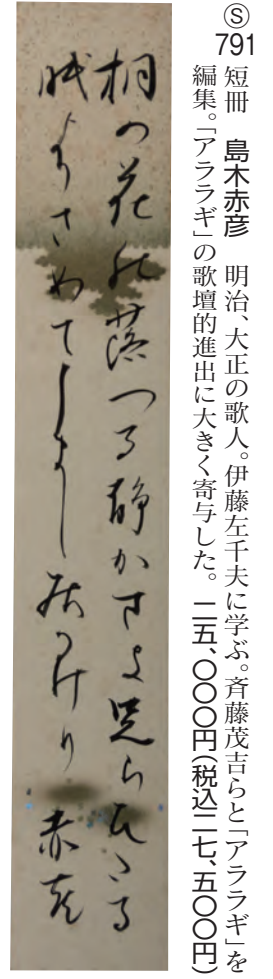 Ⓢ
791
短冊　島木赤彦　明治、大正の歌人。伊藤左千夫に学ぶ。斉藤茂吉らと「アララギ」を
編集。「アララギ」の歌壇的進出に大きく寄与した。二五、〇〇〇円（税込二七、五〇〇円）
桐の花の落つる静かさよ足らひたる
眠よりさめてしまし居るけり 赤彦